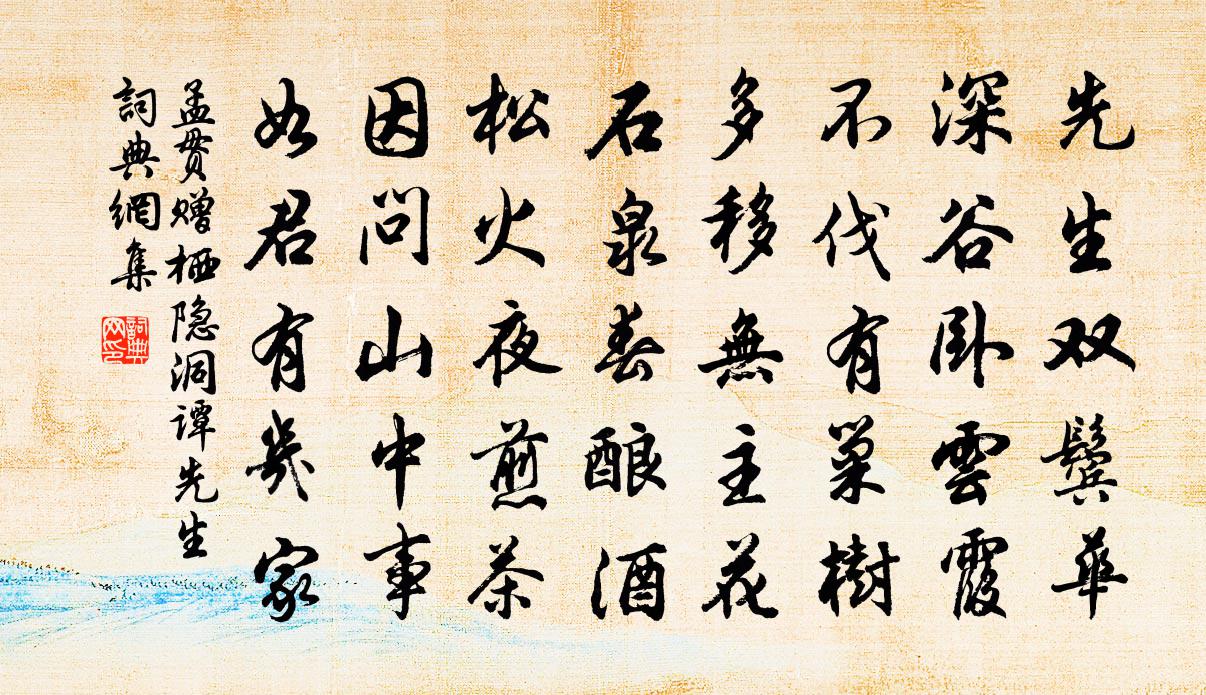 先生双鬓華
深谷卧雲霞
不伐有巢樹
多移無主花
石泉春酿酒
松火夜煎茶
因问山中事
如君有幾家
孟贯赠栖隐洞谭先生
詞典網集
詞典网印